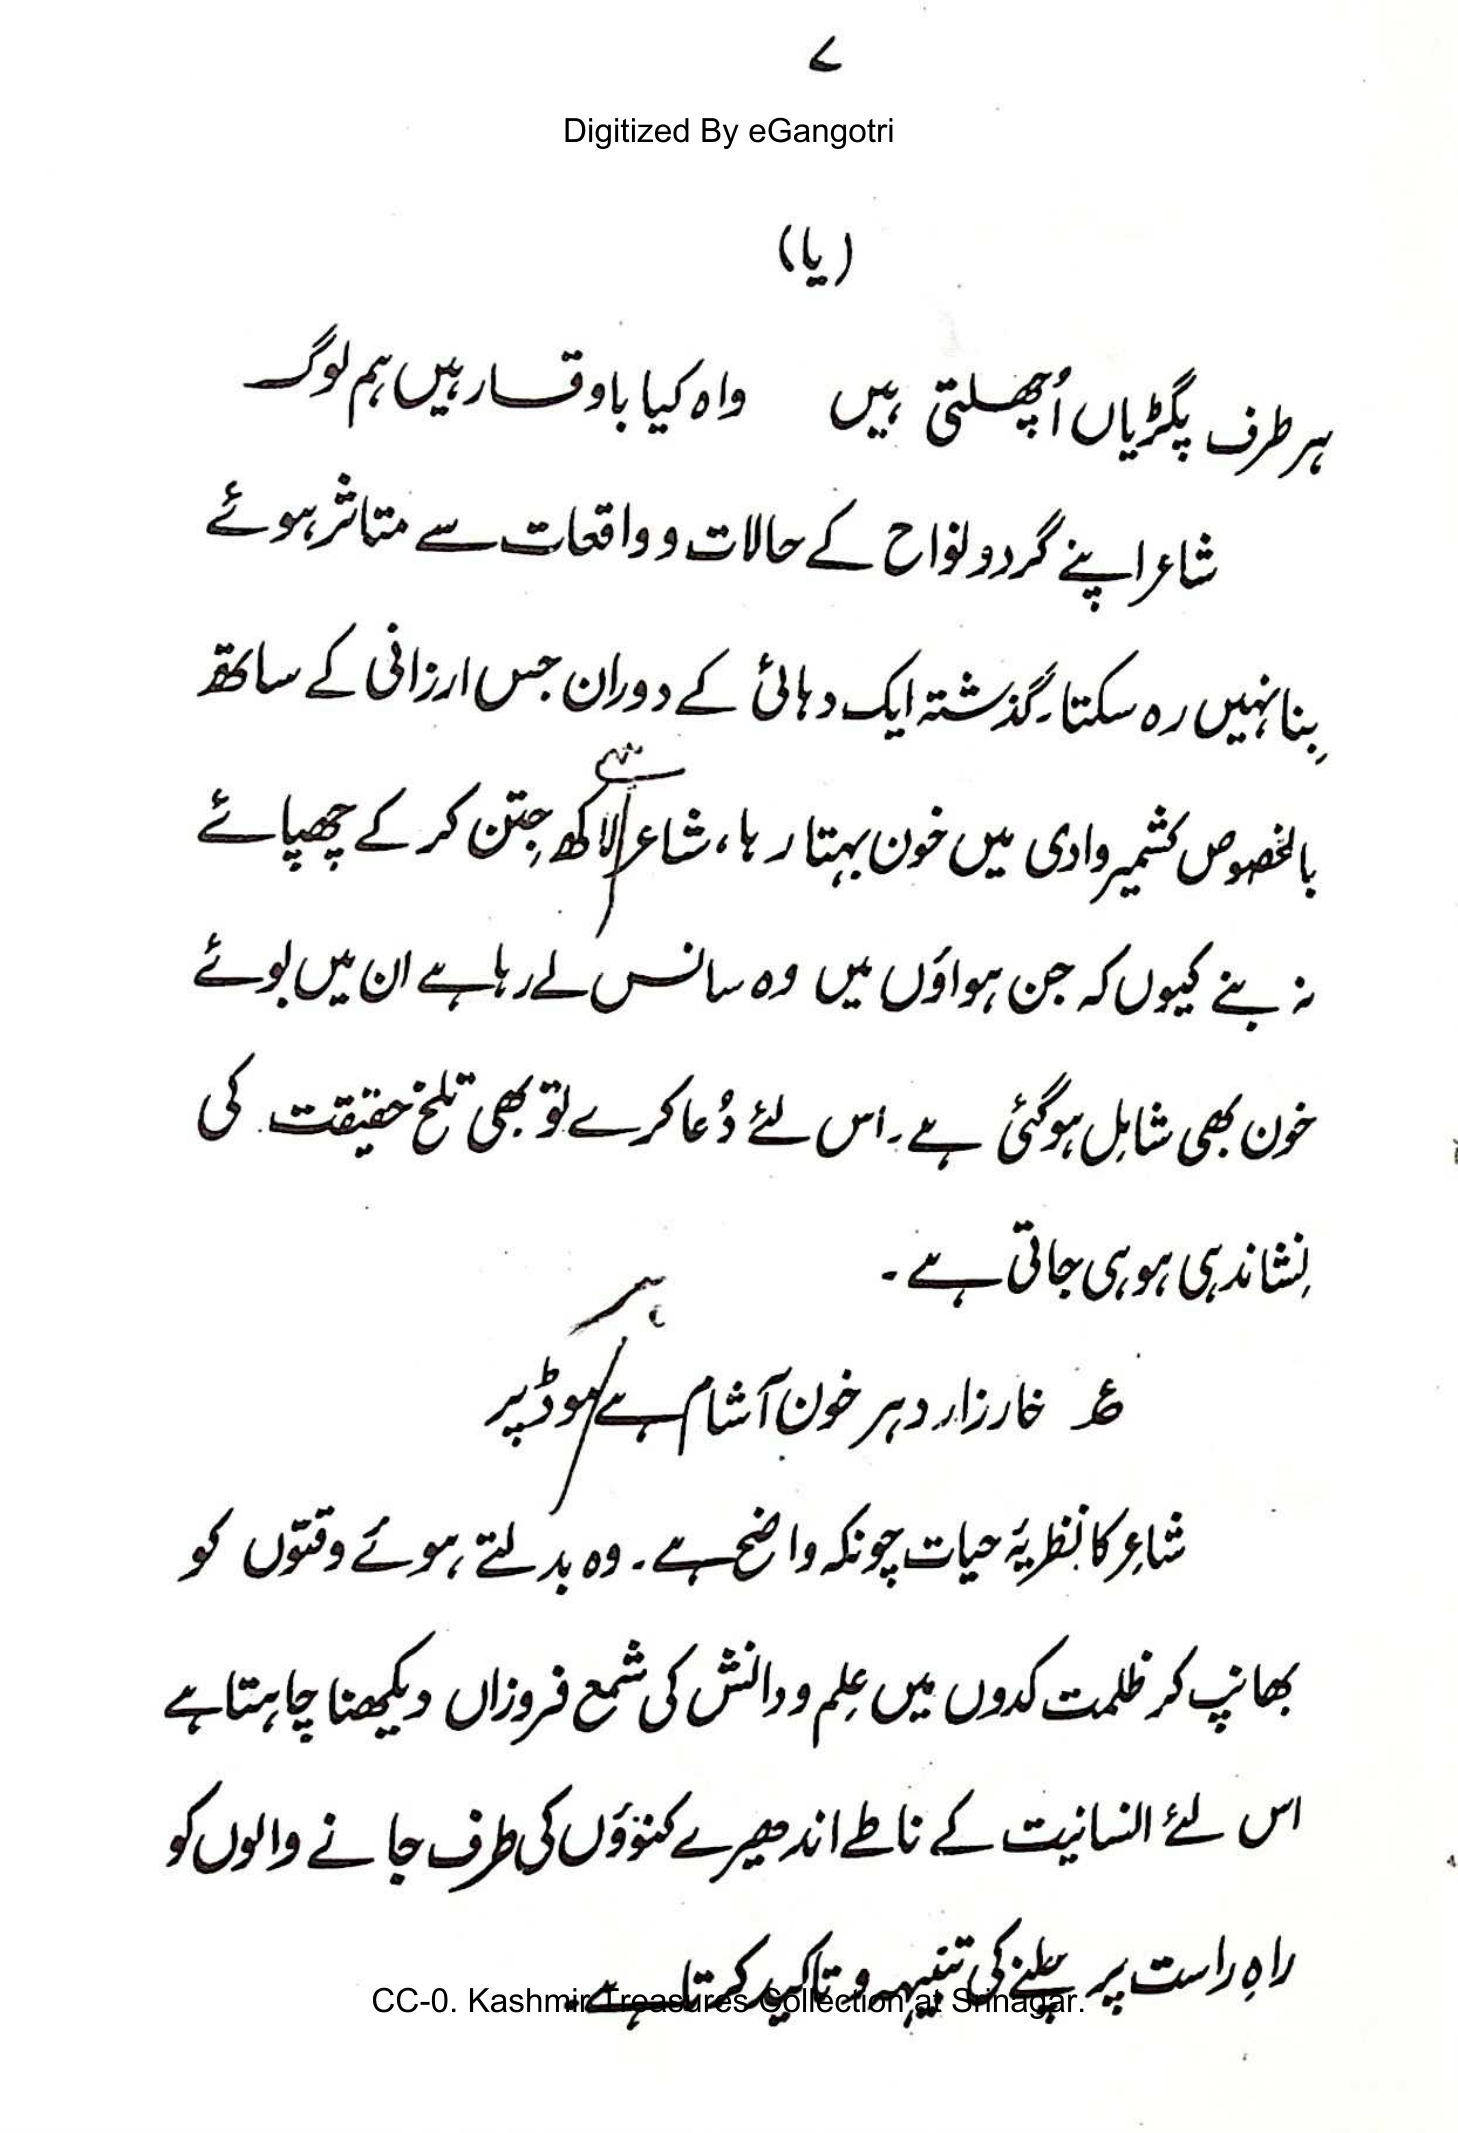 ۷
Digitized By eGangotri
(یا)
ہر طرف پگڑیاں اُچھلتی ہیں واہ کیا باوقار ہیں ہم لوگ
شاعر اپنے گردو نواح کے حالات و واقعات سے متاثر ہوئے
بِنا نہیں رہ سکتا۔ گذشتہ ایک دہائی کے دوران جس ارزانی کے ساتھ
بالخصوص کشمیر وادی میں خون بہتا رہا، شاعر سے لاکھ جِتن کر کے چھپائے
نہ بنے کیوں کہ جن ہواؤں میں وہ سانس لے رہا ہے ان میں بوئے
خون بھی شامِل ہو گئی ہے۔ اس لئے دُعا کرے تو بھی تلخ حقیقت کی
نِشاندہی ہو ہی جاتی ہے۔
ع خار زار دہر خون آشام ہے ہر موڈ پر
شاعِر کا نظریۂ حیات چونکہ واضح ہے۔ وہ بدلتے ہوئے وقتوں کو
بھانپ کر ظلمت کدوں میں عِلم و دانش کی شمع فروزاں دیکھنا چاہتا ہے
اس لئے انسانیت کے ناطے اندھیرے کنوؤں کی طرف جانے والوں کو
راہِ راست پر چلنے کی تنبیہہ و تاکید کرتا ہے۔
CC-0. Kashmir Treasures Collection at Srinagar.